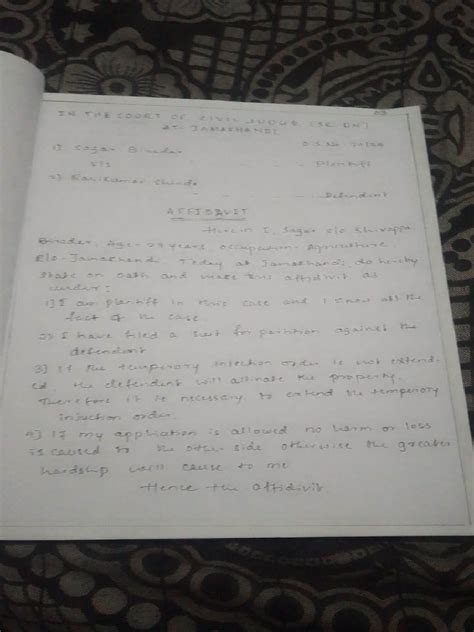 03
IN THE COURT OF CIVIL JUDGE (SR. DN)
AT. JAMAKHANDI
O.S. No
1) Sagar Biredar - - Plentiff
V/S
2) Ravikumar Shinde - - Defendent
AFFIDAVIT
Herein I, Sagar S/o Shivappa
Biredar, Age- years, occupation- Agriculture
R/o- Jamakhandi Today at Jamakhandi do hereby
state on oath and make this affidivit as
under:
1) I am plentiff in this case and I know all the
fact of the case.
2) I have filed a suit for partition against the
defendant
3) If the temperory injection order is not extend-
ed. the defendent will allinate the property.
Therefore it is necessary to extend the temperory
injuction order.
4) If my application is allowed no harm or loss
is caused to the other side otherwise the greater
hardship will cause to me
Hence the affidivit.